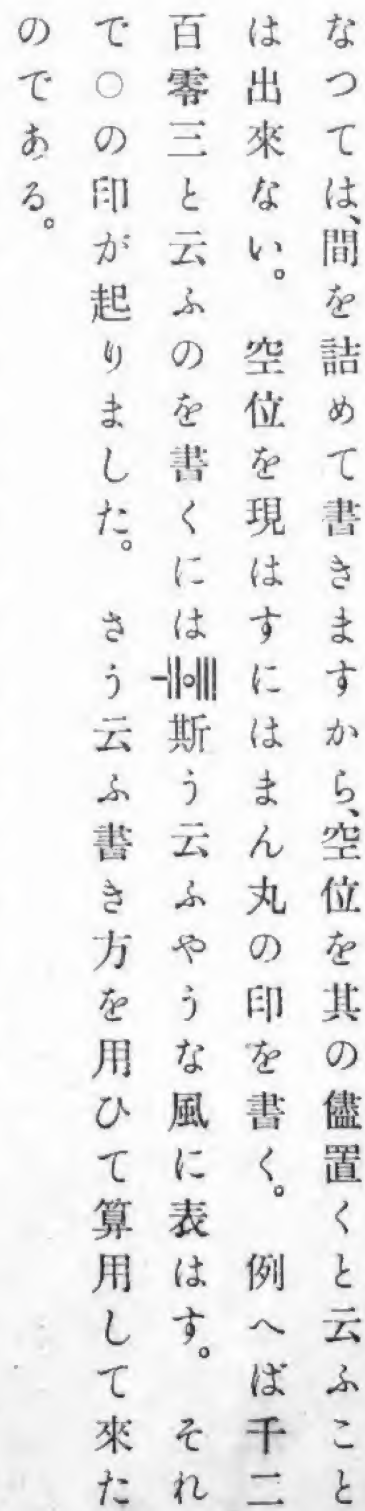 なつては、間を詰めて書きますから、空位を其の儘置くと云ふこと
は出來ない。空位を現はすにはまん丸の印を書く。例へば千二
百零三と云ふのを書くには𝍩||○|||斯う云ふやうな風に表はす。それ
で○の印が起りました。さう云ふ書き方を用ひて算用して來た
のである。